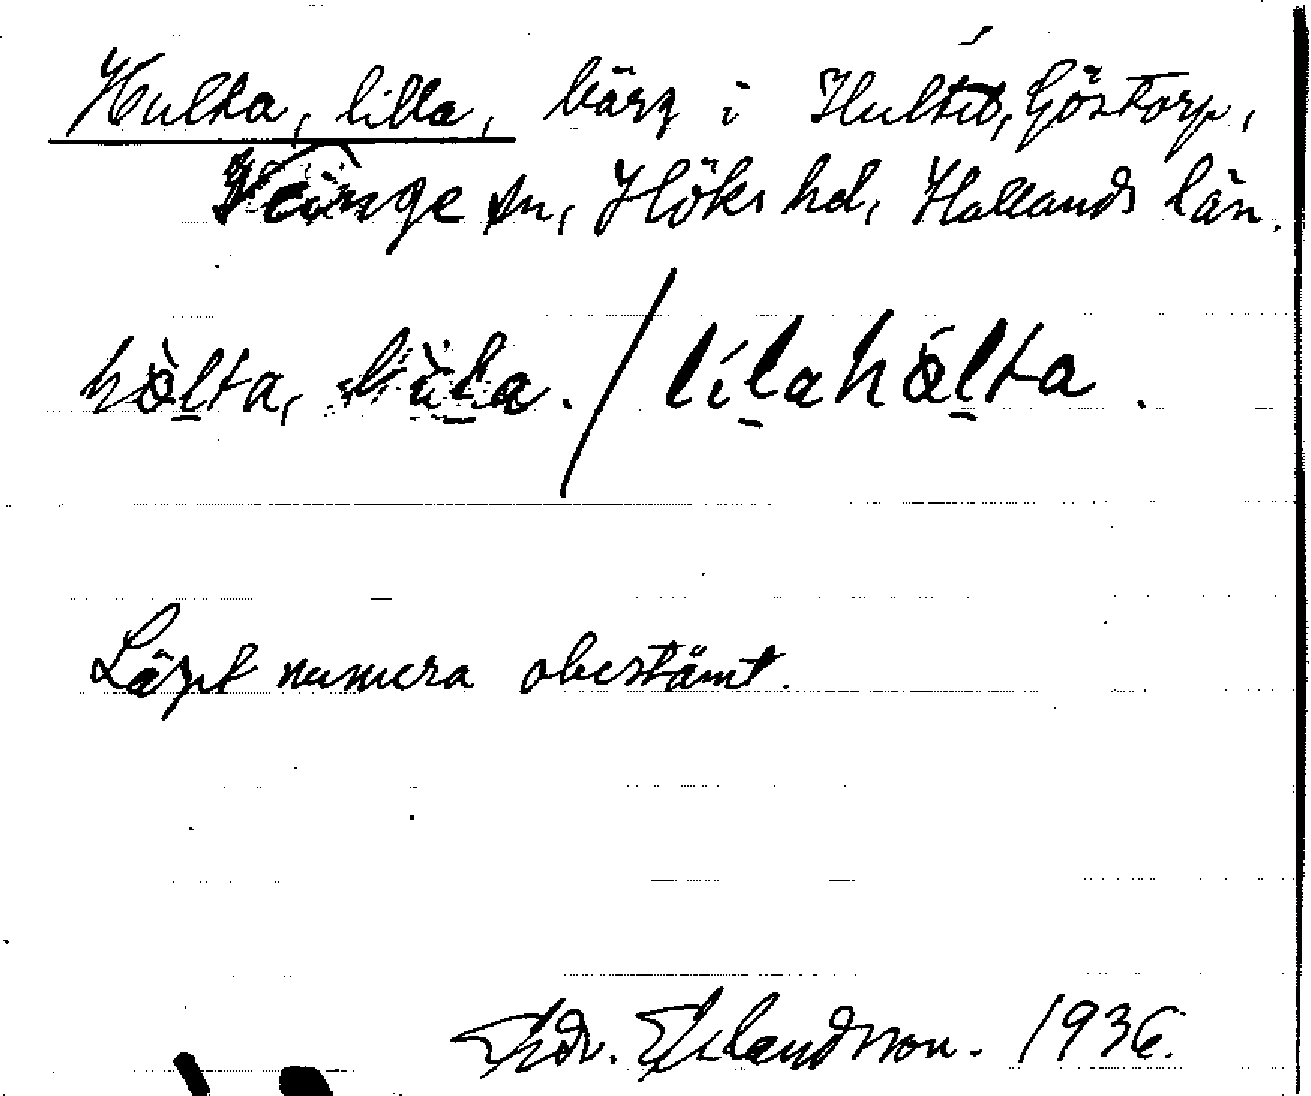 Hulta, lilla, bärg i Hultet, Göstorp,
Veinge sn, Höks hd, Hallands län.
hòlta, lìla. / lílahólta.
Läget numera obestämt.
Edv. Erlandsson. 1936.